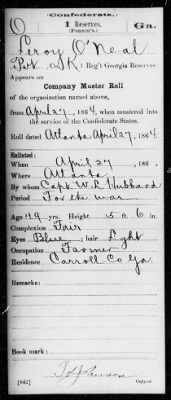 Confederate.
O 1 Reserves, Ga.
(Fannin's)
Leroy O'Neal
Pvt., Co. K, 1 Reg't Georgia Reserves.
Appears on
Company Muster Roll
of the organization named above,
from April 27, 1864, when mustered into
the service of the Confederate States.
Roll dated Atlanta April 27, 1864.
Enlisted:
When April 27, 186 .
Where Atlanta
By whom Capt. W. L. Hubbard
Period For the war
Age 49 yrs. Height 5 ft. 6 in.
Complexion Fair
Eyes Blue; hair Light
Occupation Farmer
Residence Carroll Co Ga.
Remarks:
Book mark:
Johnson
(642) Copyist.